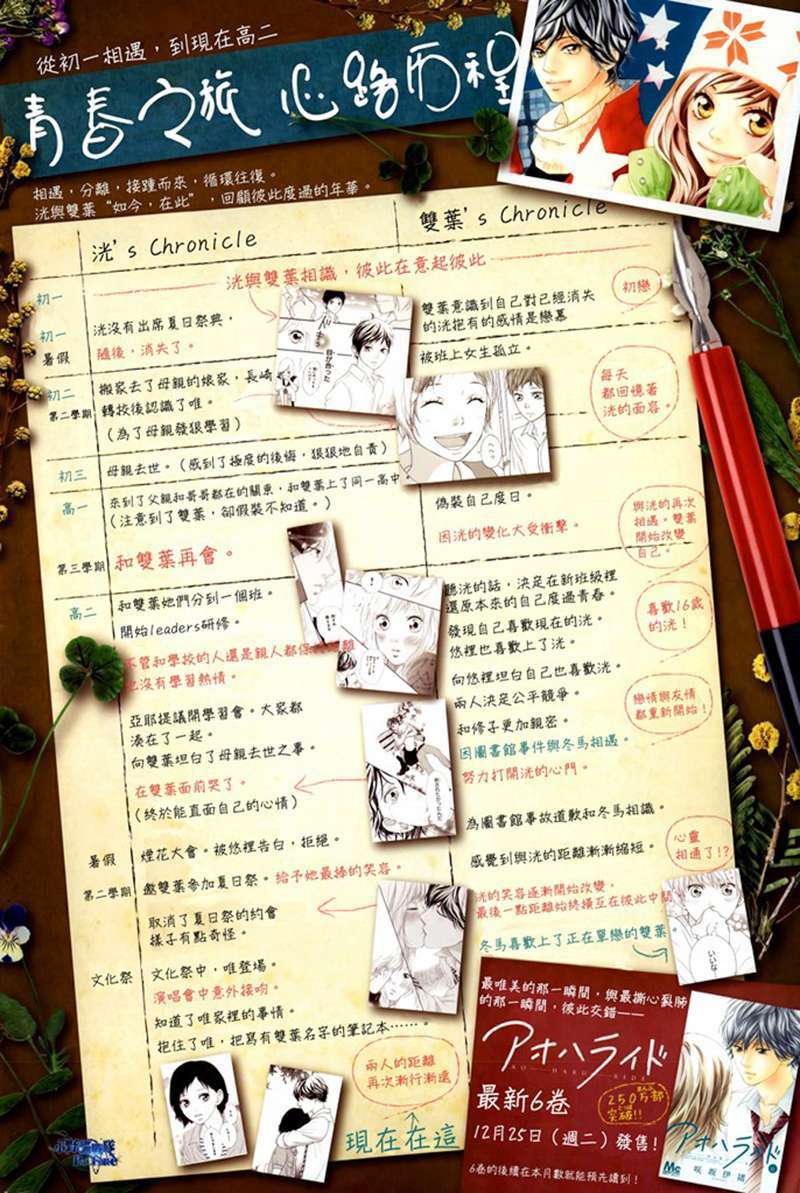 從初一相遇，到現在高二
青春之旅 心路历程
相遇，分離，接踵而來，循環往復。
洸與雙葉“如今，在此”，回顧彼此度過的年華。
洸's Chronicle
雙葉's Chronicle
初一
洸與雙葉相識，彼此在意起彼此
初戀
初一
暑假
洸沒有出席夏日祭典，
隨後，消失了。
雙葉意識到自己對已經消失
的洸抱有的感情是戀慕
被班上女生孤立。
初二
第二學期
搬家去了母親的娘家，長崎
轉校後認識了唯。
(為了母親發狠學習)
每天
都回憶著
洸的面容。
初三
母親去世。(感到了極度的後悔，狠狠地自責)
高一
來到了父親和哥哥都在的關東，和雙葉上了同一高中
(注意到了雙葉，卻假裝不知道。)
偽裝自己度日。
因洸的變化大受衝擊。
與洸的再次
相遇。雙葉
開始改變
自己。
第三學期
和雙葉再會。
高二
和雙葉她們分到一個班。
開始leaders研修。
不管和學校的人還是親人都保持距離
也沒有學習熱情。
聽洸的話，決定在新班級裡
還原本來的自己度過青春。
發現自己喜歡現在的洸。
悠裡也喜歡上了洸。
喜歡16歲
的洸！
向悠裡坦白自己也喜歡洸。
兩人決定公平競爭。
和修子更加親密。
因圖書館事件與冬馬相遇。
努力打開洸的心門。
戀情與友情
都重新開始！
亞耶提議開學習會。大家都
湊在了一起。
向雙葉坦白了母親去世之事。
在雙葉面前哭了。
(終於能直面自己的心情)
為圖書館事故道歉和冬馬相識。
感覺到與洸的距離漸漸縮短。
心靈
相通了!?
暑假
煙花大會。被悠裡告白，拒絕。
第二學期
邀雙葉參加夏日祭。給予她最捧的笑容。
取消了夏日祭的約會
樣子有點奇怪。
洸的笑容逐漸開始改變，
最後一點距離始終橫亙在彼此中間
冬馬喜歡上了正在單戀的雙葉。
いいな
文化祭
文化祭中，唯登場。
演唱會中意外接吻。
知道了唯家裡的事情。
抱住了唯，把寫有雙葉名字的筆記本……。
兩人的距離
再次漸行漸遠
現在在這
最唯美的那一瞬間，與最撕心裂肺
的那一瞬間，彼此交錯——
アオハライド
AO HARU RIDE
最新6卷
250万部
突破!!
12月25日（週二）發售！
6卷的後續在本月數就能預先讀到！
アオハライド
咲坂伊緒